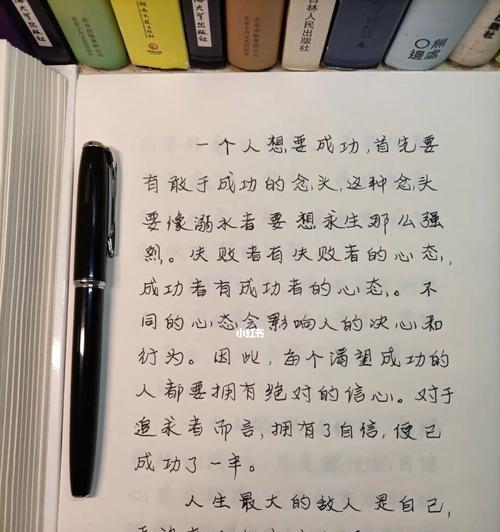 海大学出版社
湖南文艺出版社
北京出版集团公司
吉林人民出版社
北京出版集团公司
無處
邊
一个人想要成功,首先要
有敢于成功的念头,这种念头
要像溺水者要想求生那么强
烈。失败者有失败者的心态,
成功者有成功者的心态。不
同的心态会影响人的决心和
行为。因此,每个渴望成功的
人都要拥有绝对的信心。对于
追求者而言,拥有了自信,便已
成功了一半。
人生最大的敌人是自己,
小红书